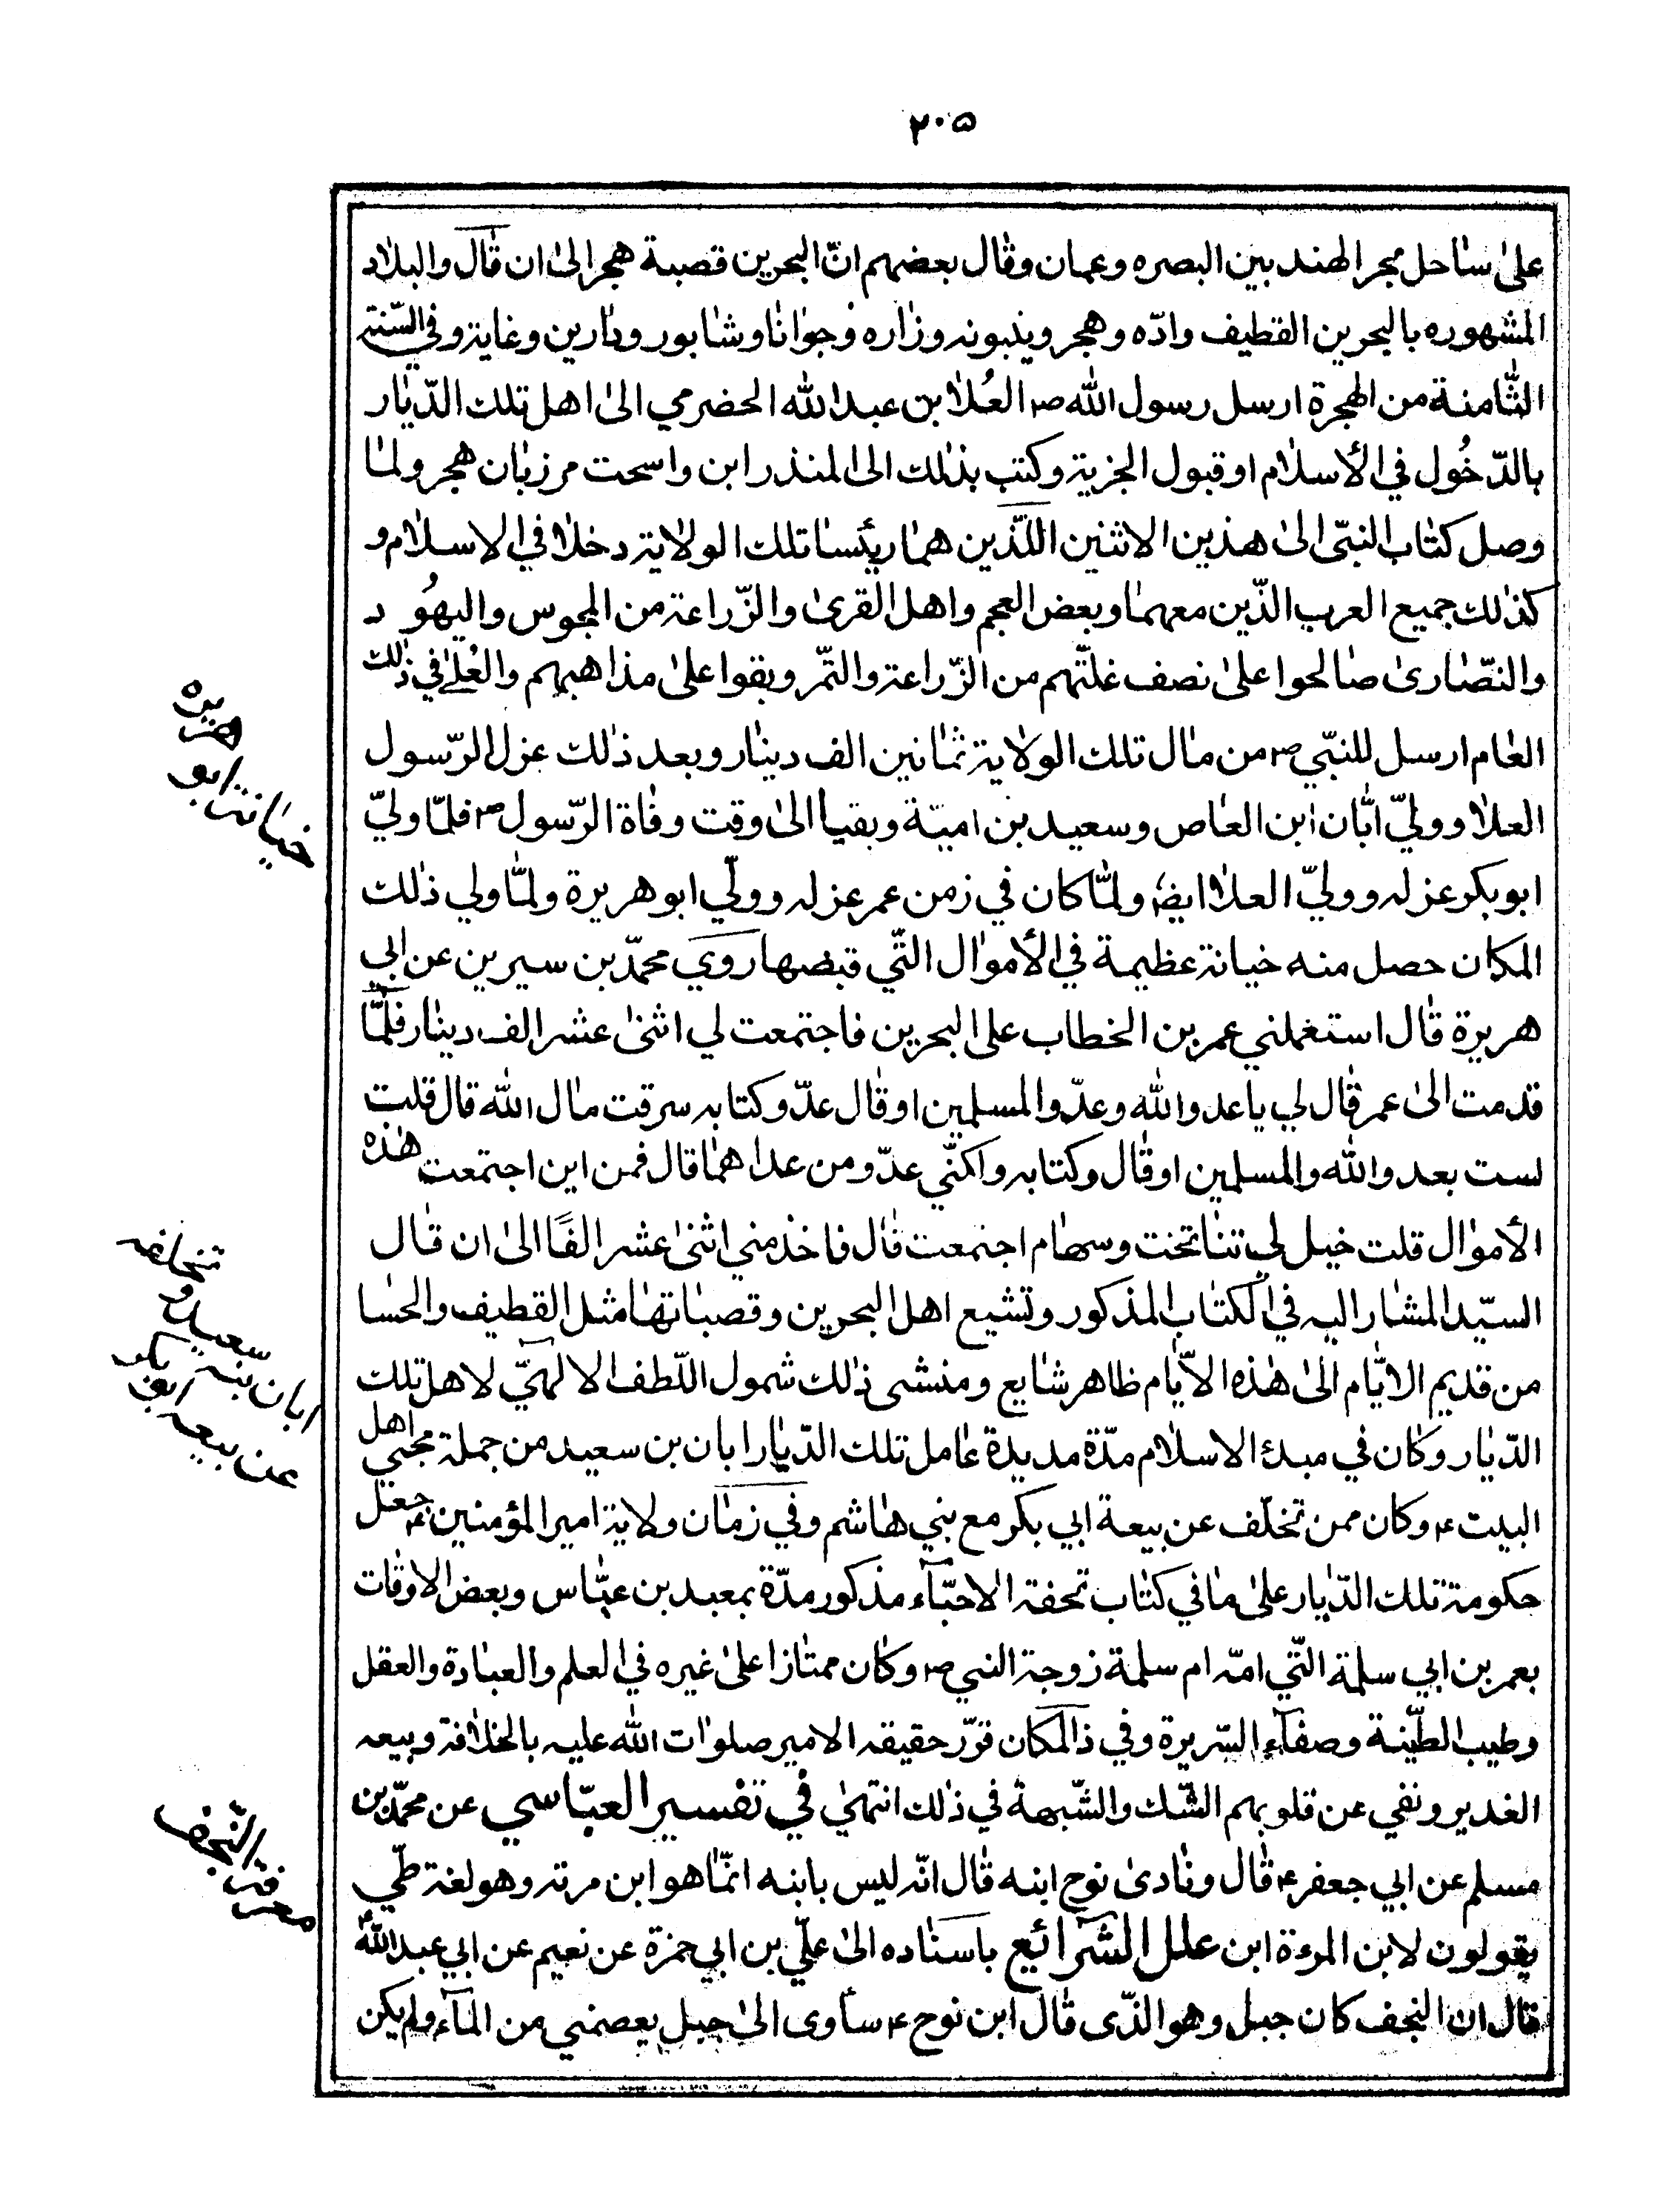 ٢٠٥
على ساحل بحر الهند بين البصره وعمان وقال بعضهم انّ البحرين قصبة هجر الى ان قال والبلاد
المشهوره بالبحرين القطيف وادّه وهجر وينبونه وزاره وجواثا وشابور ودارين وغاية وفي السّنة
الثّامنة من الهجرة ارسل رسول الله ص العُلا بن عبد الله الحضرمي الى اهل تلك الدّيار
بالدّخُول في الأسلام او قبول الجزية وكتب بذلك الى المنذر ابن واسحت مرزبان هجر ولما
وصل كتاب النبّى الى هذين الاثنين اللّذين هما ريئسا تلك الولاية دخلا في الاسلام و
كذلك جميع العرب الذّين معهما وبعض العجم واهل القرى والزّراعة من المجوس واليهُود
والنّصارى صالحوا على نصف غلتّهم من الزّراعة والتمّر وبقوا على مذاهبهم والعُلى في ذلك
العام ارسل للنبّي ص من مال تلك الولاية ثمانين الف دينار وبعد ذلك عزل الرّسول
العلا ووليّ ابّان ابن العاص وسعيد بن اميّة وبقيا الى وقت وفاة الرّسول ص فلمّا وليّ
ابوبكر عزله ووليّ العلا ايضا ولمّا كان في زمن عمر عزله وولّي ابوهريرة ولمّا ولي ذلك
المكان حصل منه خيانة عظيمة في الأموال التّي قبضها روي محمّد بن سيرين عن ابي
هريرة قال استغملني عمر بن الخطاب على البحرين فاجتمعت لي اثنى عشر الف دينار فلمّا
قدمت الى عمر قال لي يا عدو الله وعدّو المسلمين او قال عدّو كتابه سرقت مال الله قال قلت
لست بعدو الله والمسلمين او قال وكتابه ولكنّي عدّو من عداهما قال فمن اين اجتمعت هذه
الأموال قلت خيل لي تناتخت وسهام اجتمعت قال فاخذ مني اثنى عشر الفًا الى ان قال
السيّد المشار اليه في الكتاب المذكور وتشيع اهل البحرين وقصباتها مثل القطيف والحسا
من قديم الايّام الى هذه الايّام ظاهر شايع ومنشى ذلك شمول اللّطف الالهيّ لاهل تلك
الدّيار وكان في مبدئ الاسلام مدّة مديدة عامل تلك الدّيار ابان بن سعيد من جملة محبّي اهل
البيت ع وكان ممن تخلّف عن بيعة ابي بكر مع بني هاشم وفي زمان ولاية امير المؤمنين ع جعل
حكومة تلك الدّيار على ما في كتاب تحفة الاحبّآء مذكور مدّة بمعبد بن عبّاس وبعض الاوقات
بعمر بن ابي سلمة التّي امّه ام سلمة زوجة النبي ص وكان ممتازا على غيره في العلم والعبادة والعقل
وطيب الطّينة وصفآء السّريرة وفي ذا المكان قرّر حقيقه الامير صلوات الله عليه بالخلافة وبيعه
الغدير ونفي عن قلوبهم الشّك والشّبهة في ذلك انتهى في تفسير العبّاسي عن محمّد بن
مسلم عن ابي جعفر ع قال ونادى نوح ابنه قال انّه ليس بابنه انمّا هو ابن مرته وهو لغة طّي
يقولون لابن المرءة ابن علل الشّرائع باسناده الى علّي بن ابي حمزة عن نعيم عن ابي عبد الله ع
قال ان النجف كان جبل وهو الذّى قال ابن نوح ع سأوى الى جبل يعصمني من المآء ولم يكن
خيانة ابو
هريره
تخلف
سعيد و
ابان بن
عن بيعه ابوبكر
معرفة النّجف